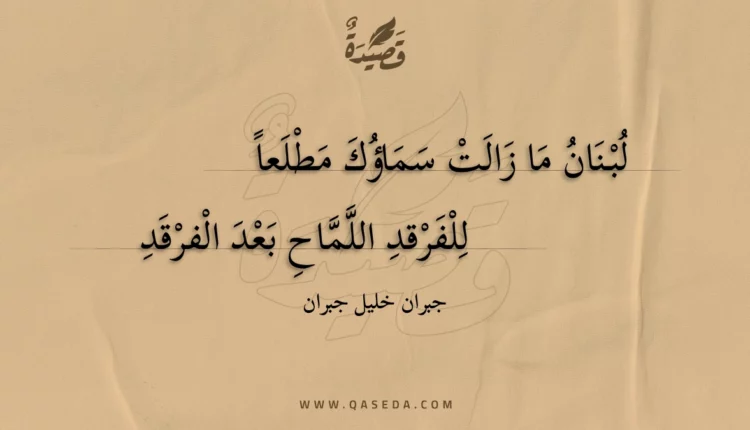 قَصِيْدَةٌ
لُبْنَانُ مَا زَالَتْ سَمَاؤُكَ مَطْلَعاً
لِلْفَرْقدِ اللَّمَّاحِ بَعْدَ الْفرْقَدِ
جبران خليل جبران
WWW.QASEDA.COM